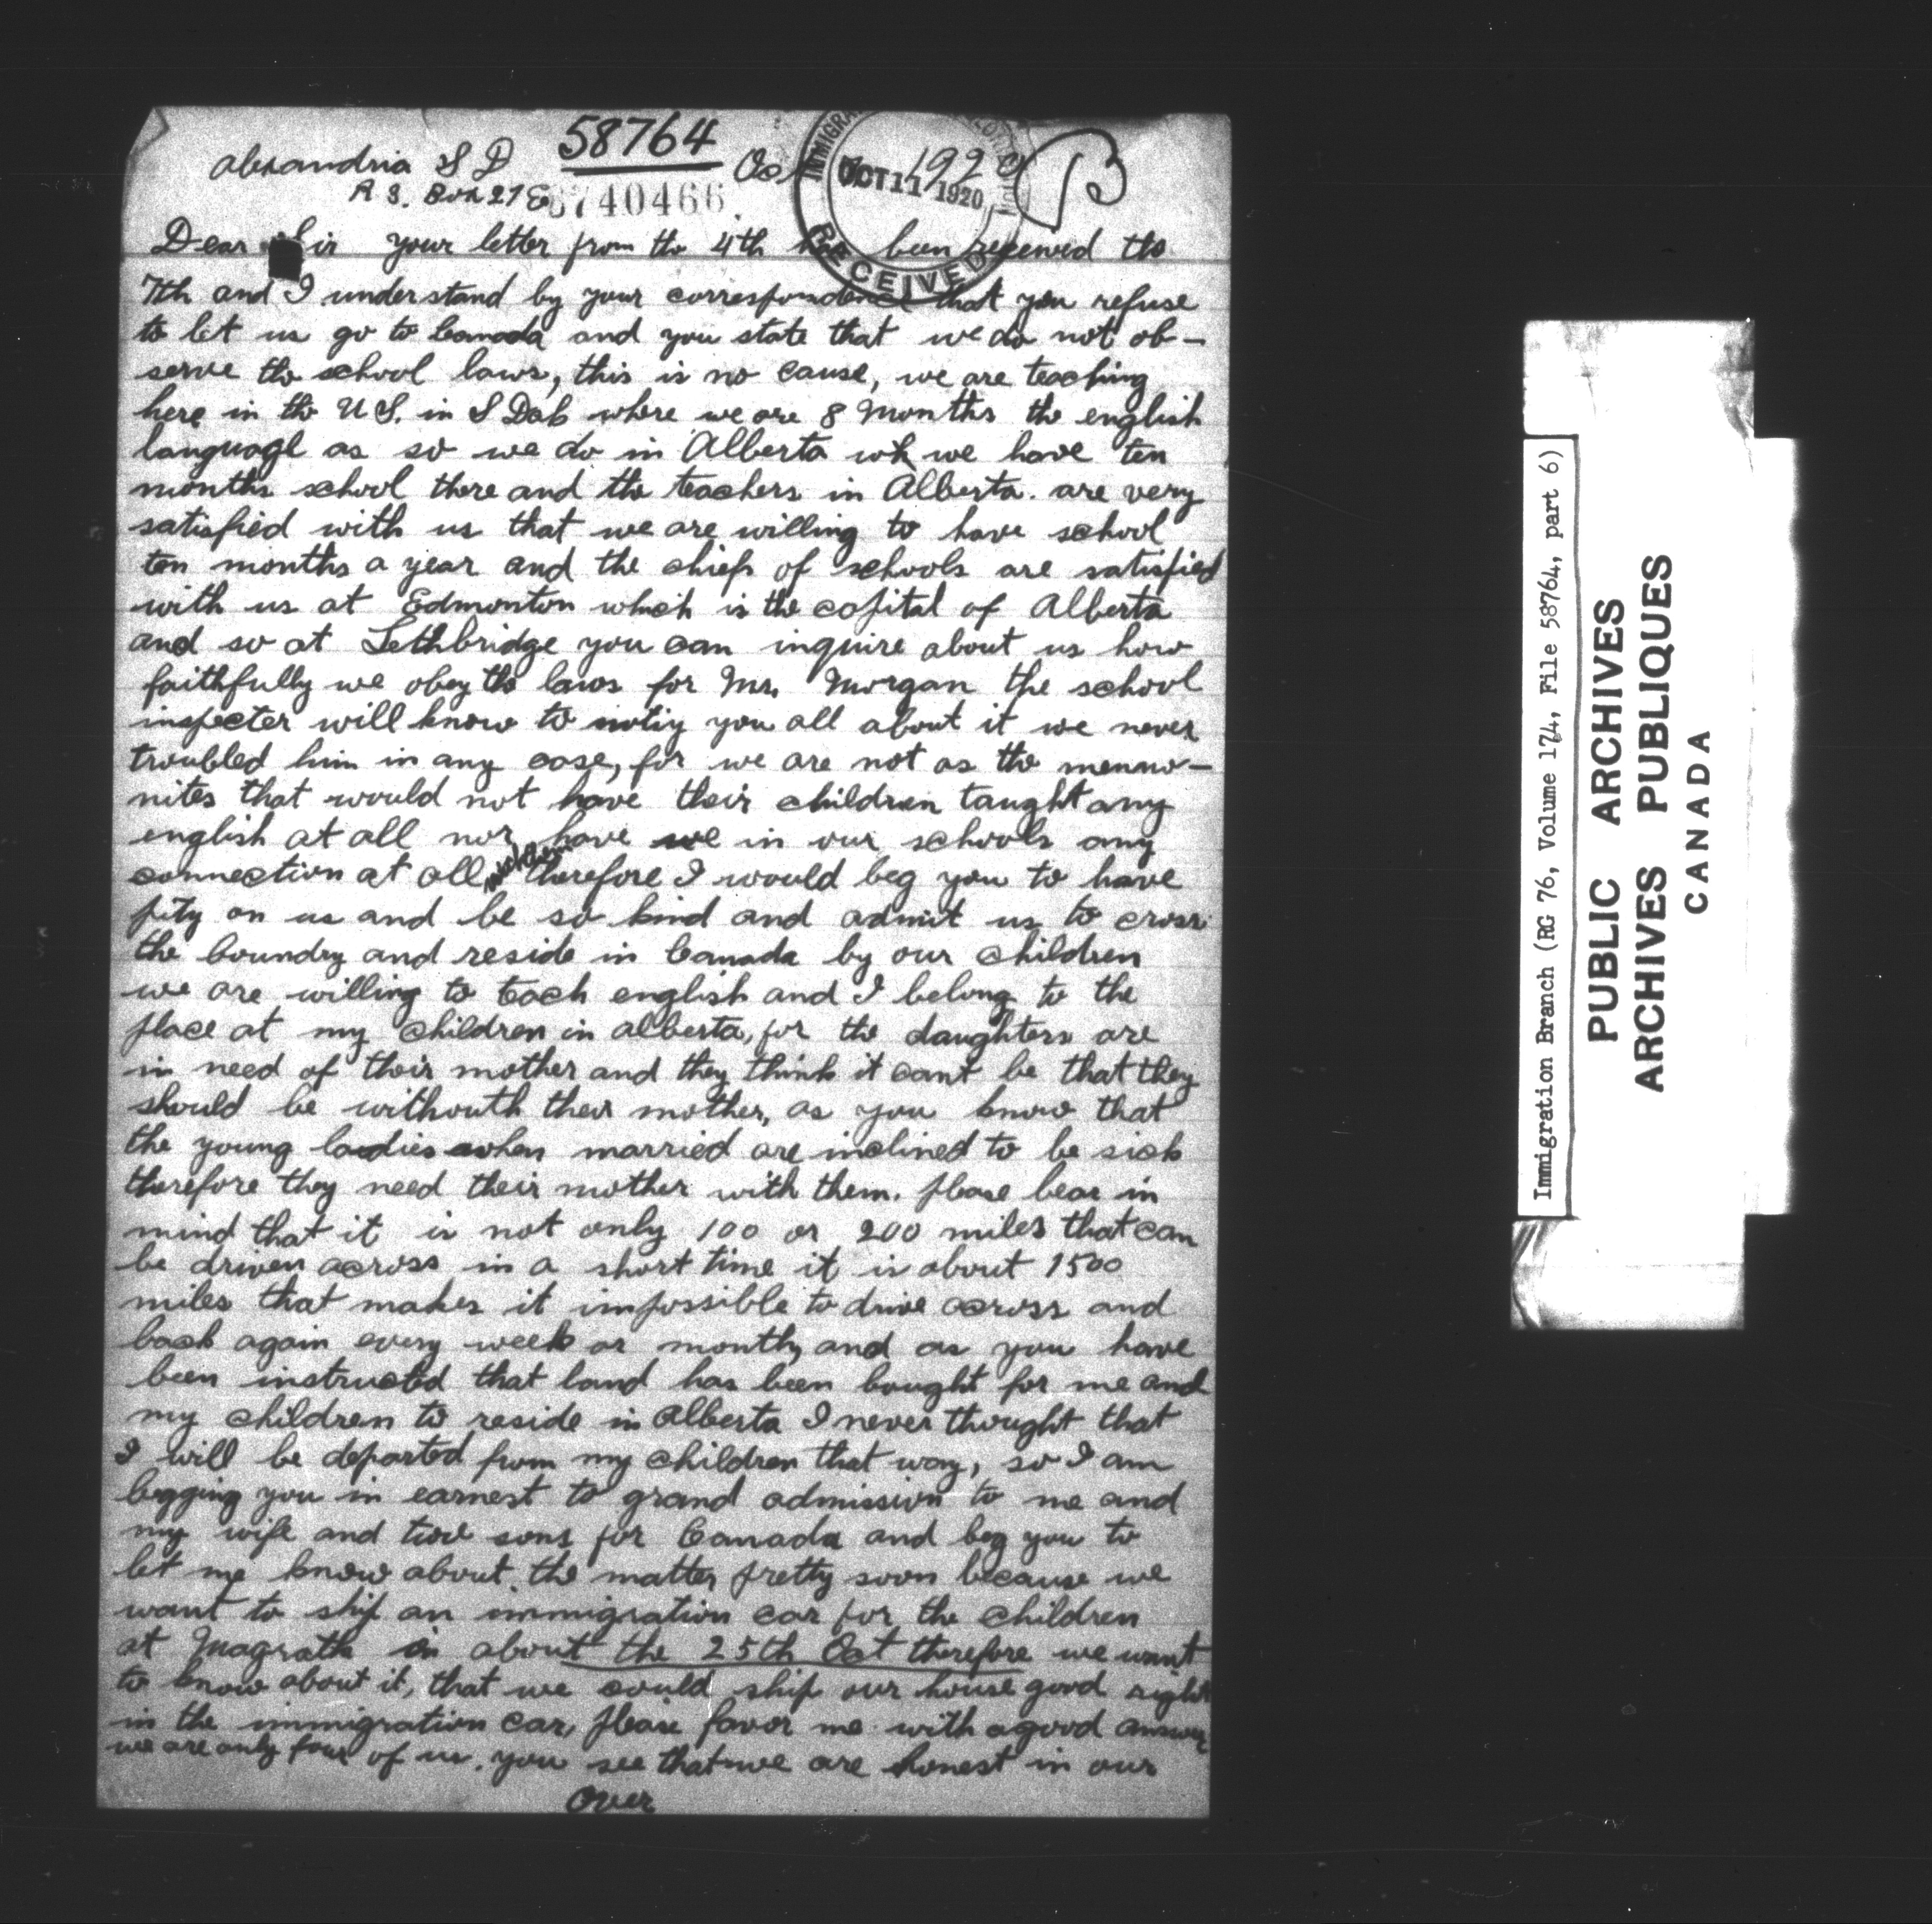 58764
Alexandria S D Oct 1920
R 3. Box 27
740466
IMMIGRA
OCT 11 1920
RECEIVED
B
Dear Sir your letter from the 4th been received the
7th and I understand by your correspondence that you refuse
to let us go to Canada and you state that we do not ob-
serve the school laws, this is no cause, we are teaching
here in the U S. in S Dak where we are 8 Months the english
language as so we do in Alberta wh we have ten
months school there and the teachers in Alberta. are very
satisfied with us that we are willing to have school
ten months a year and the chiefs of schools are satisfied
with us at Edmonton which is the copital of Alberta
and so at Lethbridge you can inquire about us how
faithfully we obey the laws for Mr. Morgan the school
inspecter will know to notiy you all about it we never
troubled him in any case, for we are not as the menno-
nites that would not have their children taught any
english at all nor have we in our schools any
connection at all therefore I would beg you to have
pity on us and be so kind and admit us to cross
the boundry and reside in Canada by our children
we are willing to teach english and I belong to the
place at my children in alberta, for the daughters are
in need of their mother and they think it cant be that they
should be withouth their mother, as you know that
the young ladies when married are inclined to be sick
therefore they need their mother with them. please bear in
mind that it is not only 100 or 200 miles that can
be driven across in a short time it is about 1500
miles that makes it impossible to drive across and
back again every week or month, and as you have
been instructed that land has been bought for me and
my children to reside in Alberta I never thought that
I will be departed from my children that way, so I am
begging you in earnest to grand admission to me and
my wife and two sons for Canada and beg you to
let me know about the matter pretty soon because we
want to ship an immigration car for the children
at Magrath in about the 25th Oct therefore we want
to know about it, that we could ship our house good right
in the immigration car, please favor me with a good answer
we are only four of us. you see that we are honest in our
over
Immigration Branch (RG 76, Volume 174, File 58764, part 6)
PUBLIC ARCHIVES
ARCHIVES PUBLIQUES
CANADA